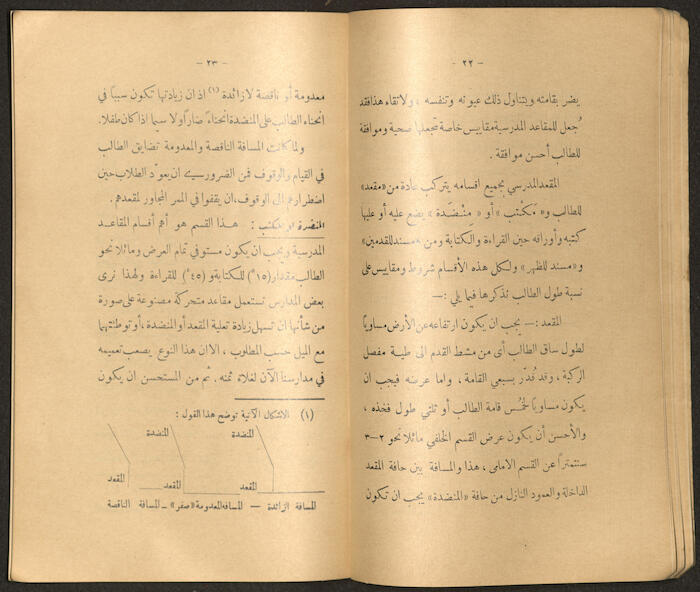 — ٢٢ —
يضر بقامته ويتناول ذلك عيونه وتنفسه ، ولاتقاء هذا فقد
جُعل للمقاعد المدرسية مقاييس خاصة تجعلها صحية وموافقة
للطالب أحسن موافقة .
المقعد المدرسي بجميع اقسامه يتركب عادة من «مقعد»
للطالب و« مَكْتب » أو « مِنْضَدة » يضع عليه أو عليها
كتبه وأوراقه حين القراءة والكتابة ومن «مسند للقدمين»
و«مسند للظهر» ولكل هذه الأقسام شروط ومقاييس على
نسبة طول الطالب نذكرها فيما يلي :—
المقعد :— يجب ان يكون ارتفاعه عن الأرض مساوياً
لطول ساق الطالب أى من مشط القدم الى طية مفصل
الركبة ، وقد قُدّر بسبعي القامة ، واما عرضه فيجب ان
يكون مساوياً لخُمس قامة الطالب أو ثلثي طول فخذه ،
والأحسن أن يكون عرض القسم الخلفي مائلا نحو ٢—٣
سنتمتراً عن القسم الامامى ، هذا والمسافة بين حافة المقعد
الداخلة والعمود النازل من حافة «المنضدة» يجب ان تكون
— ٢٣ —
معدومة أو ناقصة لا زائدة (١) اذ ان زيادتها تكون سبباً في
انحناء الطالب على المنضدة انحناءً ضاراً ولا سيما اذا كان طفلا.
ولما كانت المسافة الناقصة والمعدومة تضايق الطالب
في القيام والوقوف فمن الضروري ان يعوّد الطلاب حين
اضطرارهم الى الوقوف، ان يقفوا في الممر المجاور لمقعدهم.
المنضدة او المكتب : هذا القسم هو أهم أقسام المقاعد
المدرسية ويجب ان يكون مستو في تمام العرض ومائلا نحو
الطالب بمقدار (١٥°) للكتابة و (٤٥°) للقراءة ولهذا نرى
بعض المدارس تستعمل مقاعد متحركة مصنوعة على صورة
من شأنها ان تسهل زيادة تعلية المقعد أو المنضدة ، أو توطئتهما
مع الميل حسب المطلوب ، الا ان هذا النوع يصعب تعميمه
في مدارسنا الآن لغلاء ثمنه . ثم من المستحسن ان يكون
(١) الاشكال الآتية توضح هذا القول :
المنضدة المنضدة المنضدة
المقعد المقعد المقعد
المسافة الزائدة — المسافه المعدومة «صفر» — المسافة الناقصة